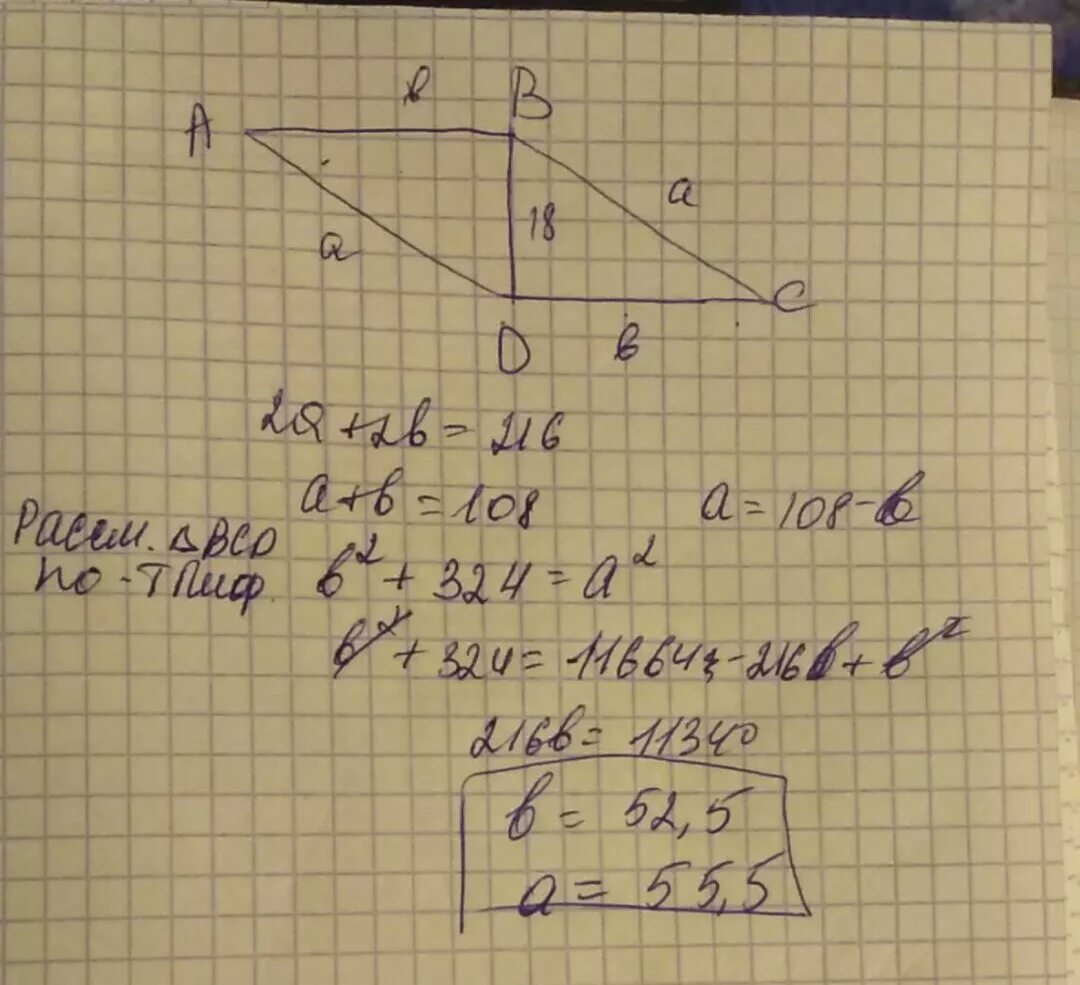 в B
A
a 18 a
D в C
2a + 2в = 216
a + в = 108 a = 108 - в
Рассм. △BCD
по - ТПиф. в² + 324 = a²
в² + 324 = 11664 - 216в + в²
216в = 11340
в = 52,5
a = 55,5